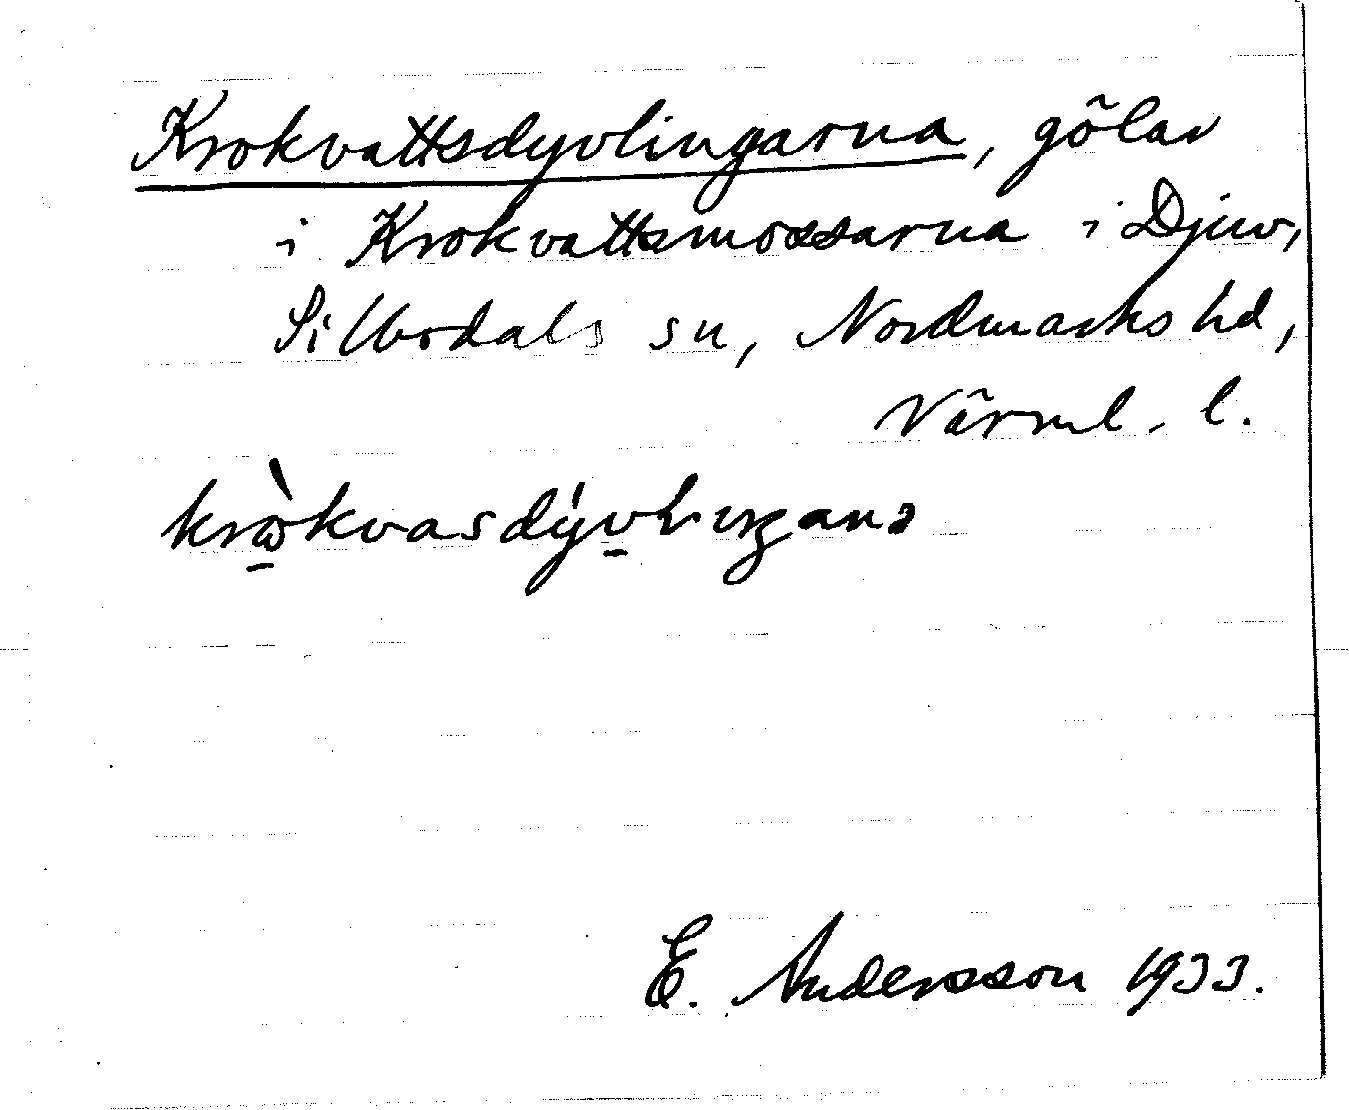 Krokvattsdyvlingarna, gölar
i Krokvattsmossarna i Djuv,
Silbodals sn, Nordmarks hd,
Värml. l.
E. Andersson 1933.